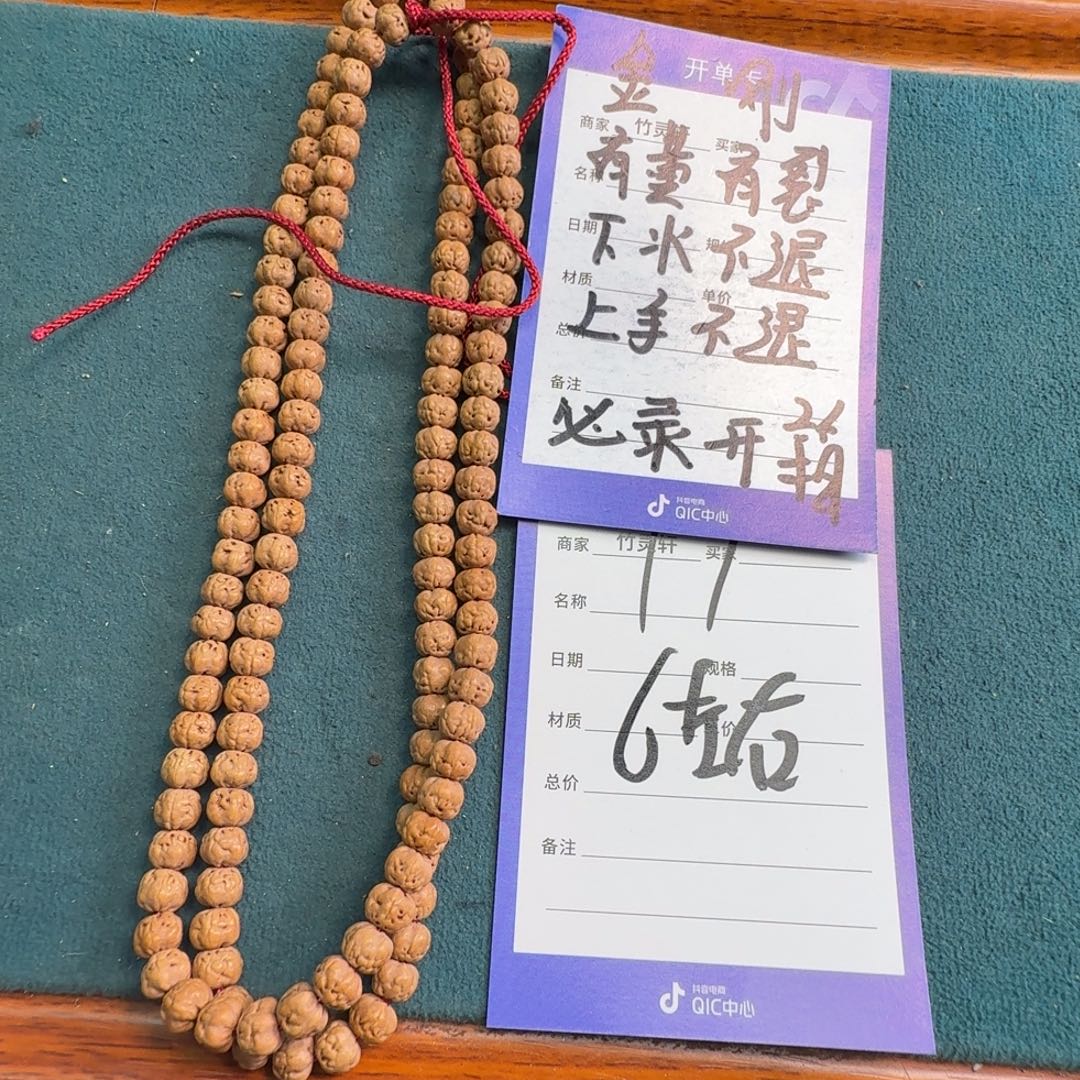 开单
金刚
商家 竹灵轩 买家
有童有裂
名称
日期
下水不退
材质 单价
上手不退
备注
必录开箱
抖音电商
QIC中心
商家 竹灵轩 买家
名称
11
日期 规格
6左右
材质 价
总价
备注
抖音电商
QIC中心